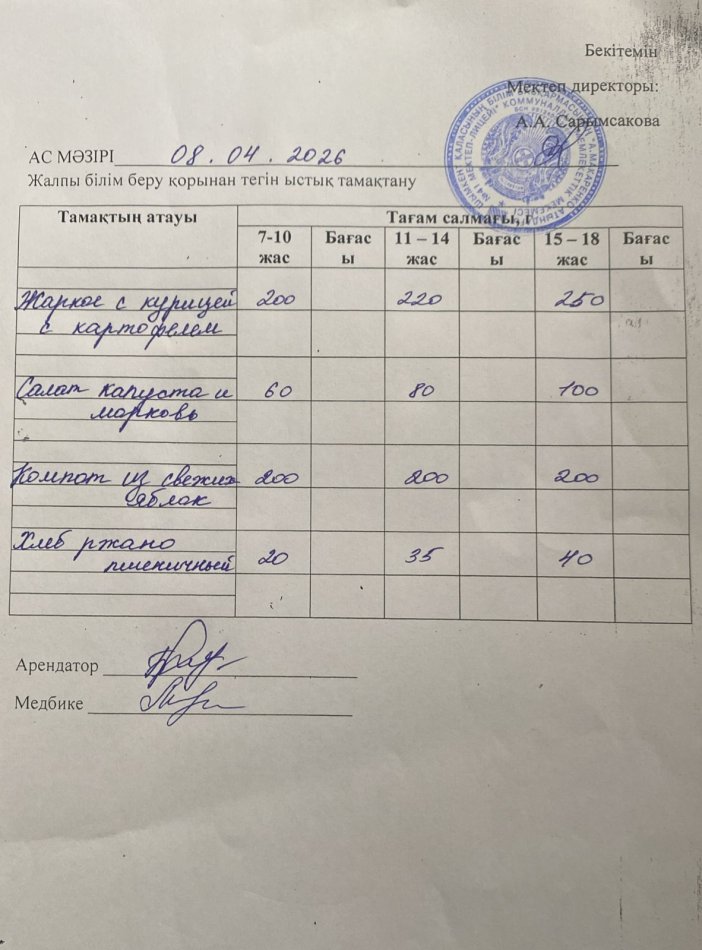 Бекітемін
Мектеп директоры:
А.А. Сарымсакова
АС МӘЗІРІ 08.04.2026
Жалпы білім беру қорынан тегін ыстық тамақтану
Тамақтың атауы Тағам салмағы, г.
7-10 жас Бағасы 11 – 14 жас Бағасы 15 – 18 жас Бағасы
Жаркое с курицей 200 220 250
с картофелем
Салат капуста и 60 80 100
морковь
Компот из свежих 200 200 200
яблок
Хлеб ржано
пшеничный 20 35 40
Арендатор
Медбике